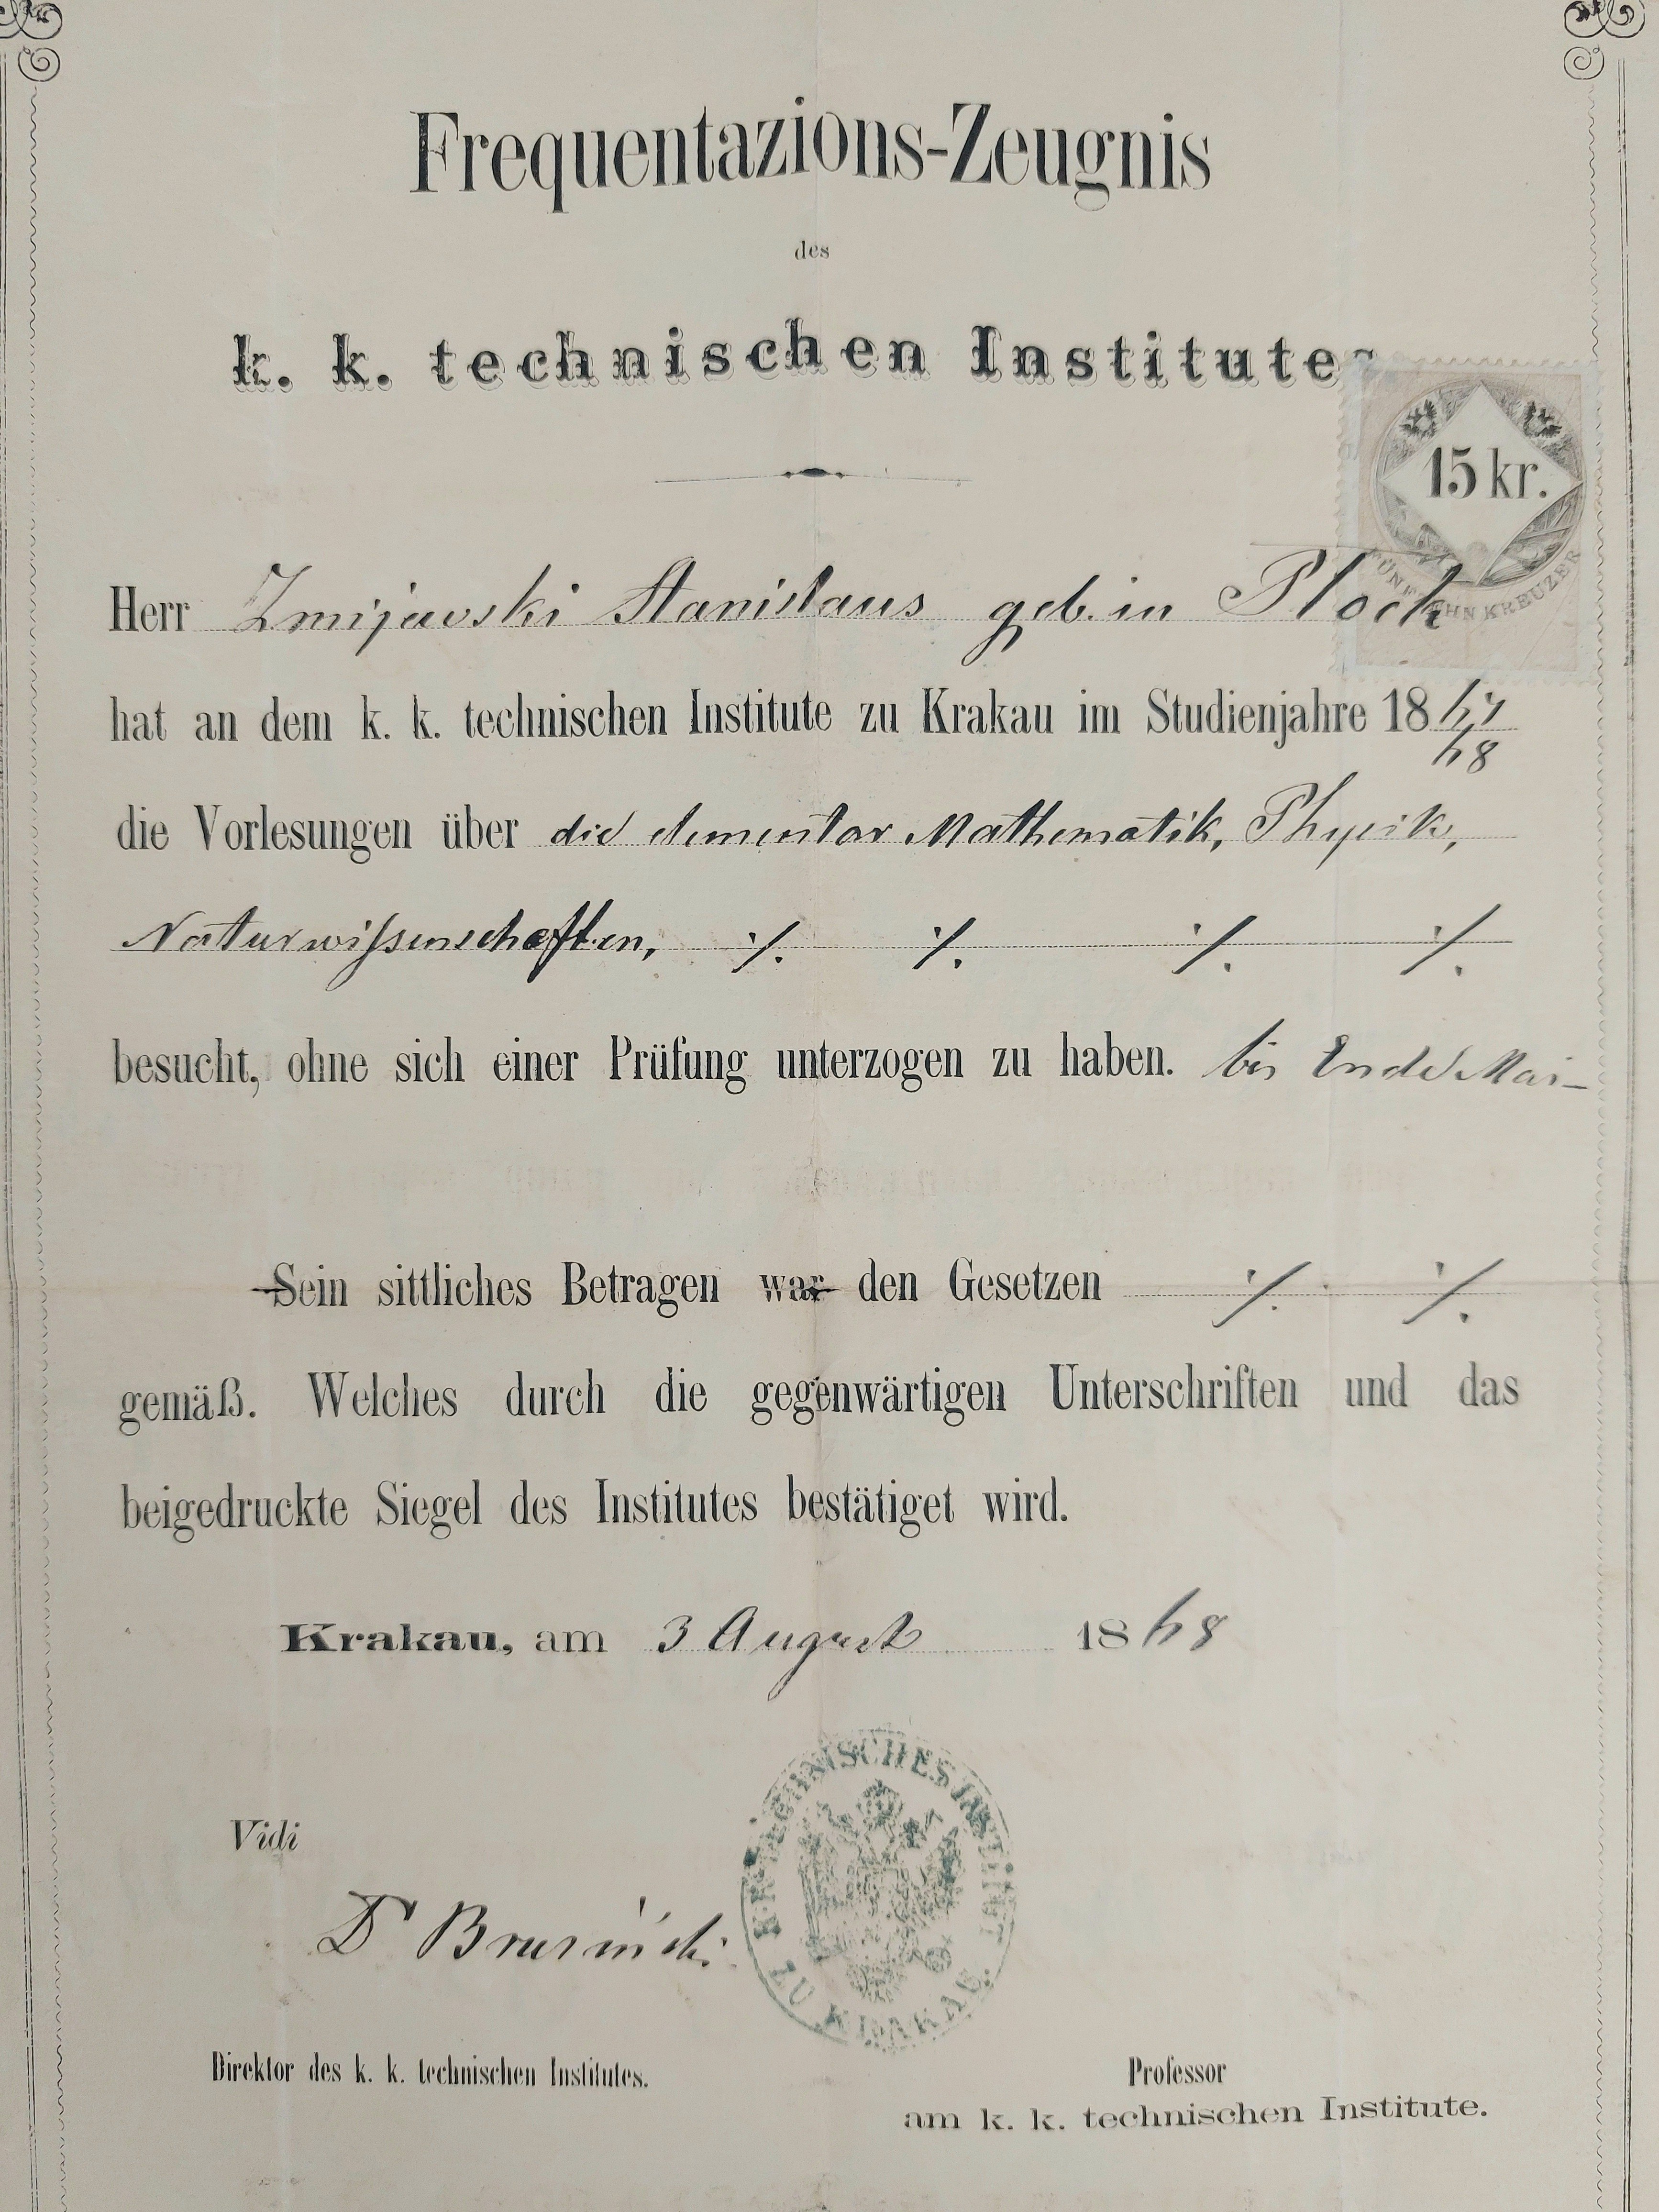 Frequentazions-Zeugnis
des
k. k. technischen Institutes
15 kr.
FÜNFZEHN KREUZER
Herr Zmijavski Stanislaus geb. in Plock
hat an dem k. k. technischen Institute zu Krakau im Studienjahre 1867/68
die Vorlesungen über die elementar Mathematik, Physik,
Naturwissenschaften, ·/. ·/. ·/. ·/.
besucht, ohne sich einer Prüfung unterzogen zu haben. bis Ende Mai –
Sein sittliches Betragen war den Gesetzen ·/. ·/.
gemäß. Welches durch die gegenwärtigen Unterschriften und das
beigedruckte Siegel des Institutes bestätiget wird.
Krakau, am 3 August 1868
K. K. TECHNISCHES INSTITUT ZU KRAKAU.
Vidi
Dr
Direktor des k. k. technischen Institutes.
Professor
am k. k. technischen Institute.